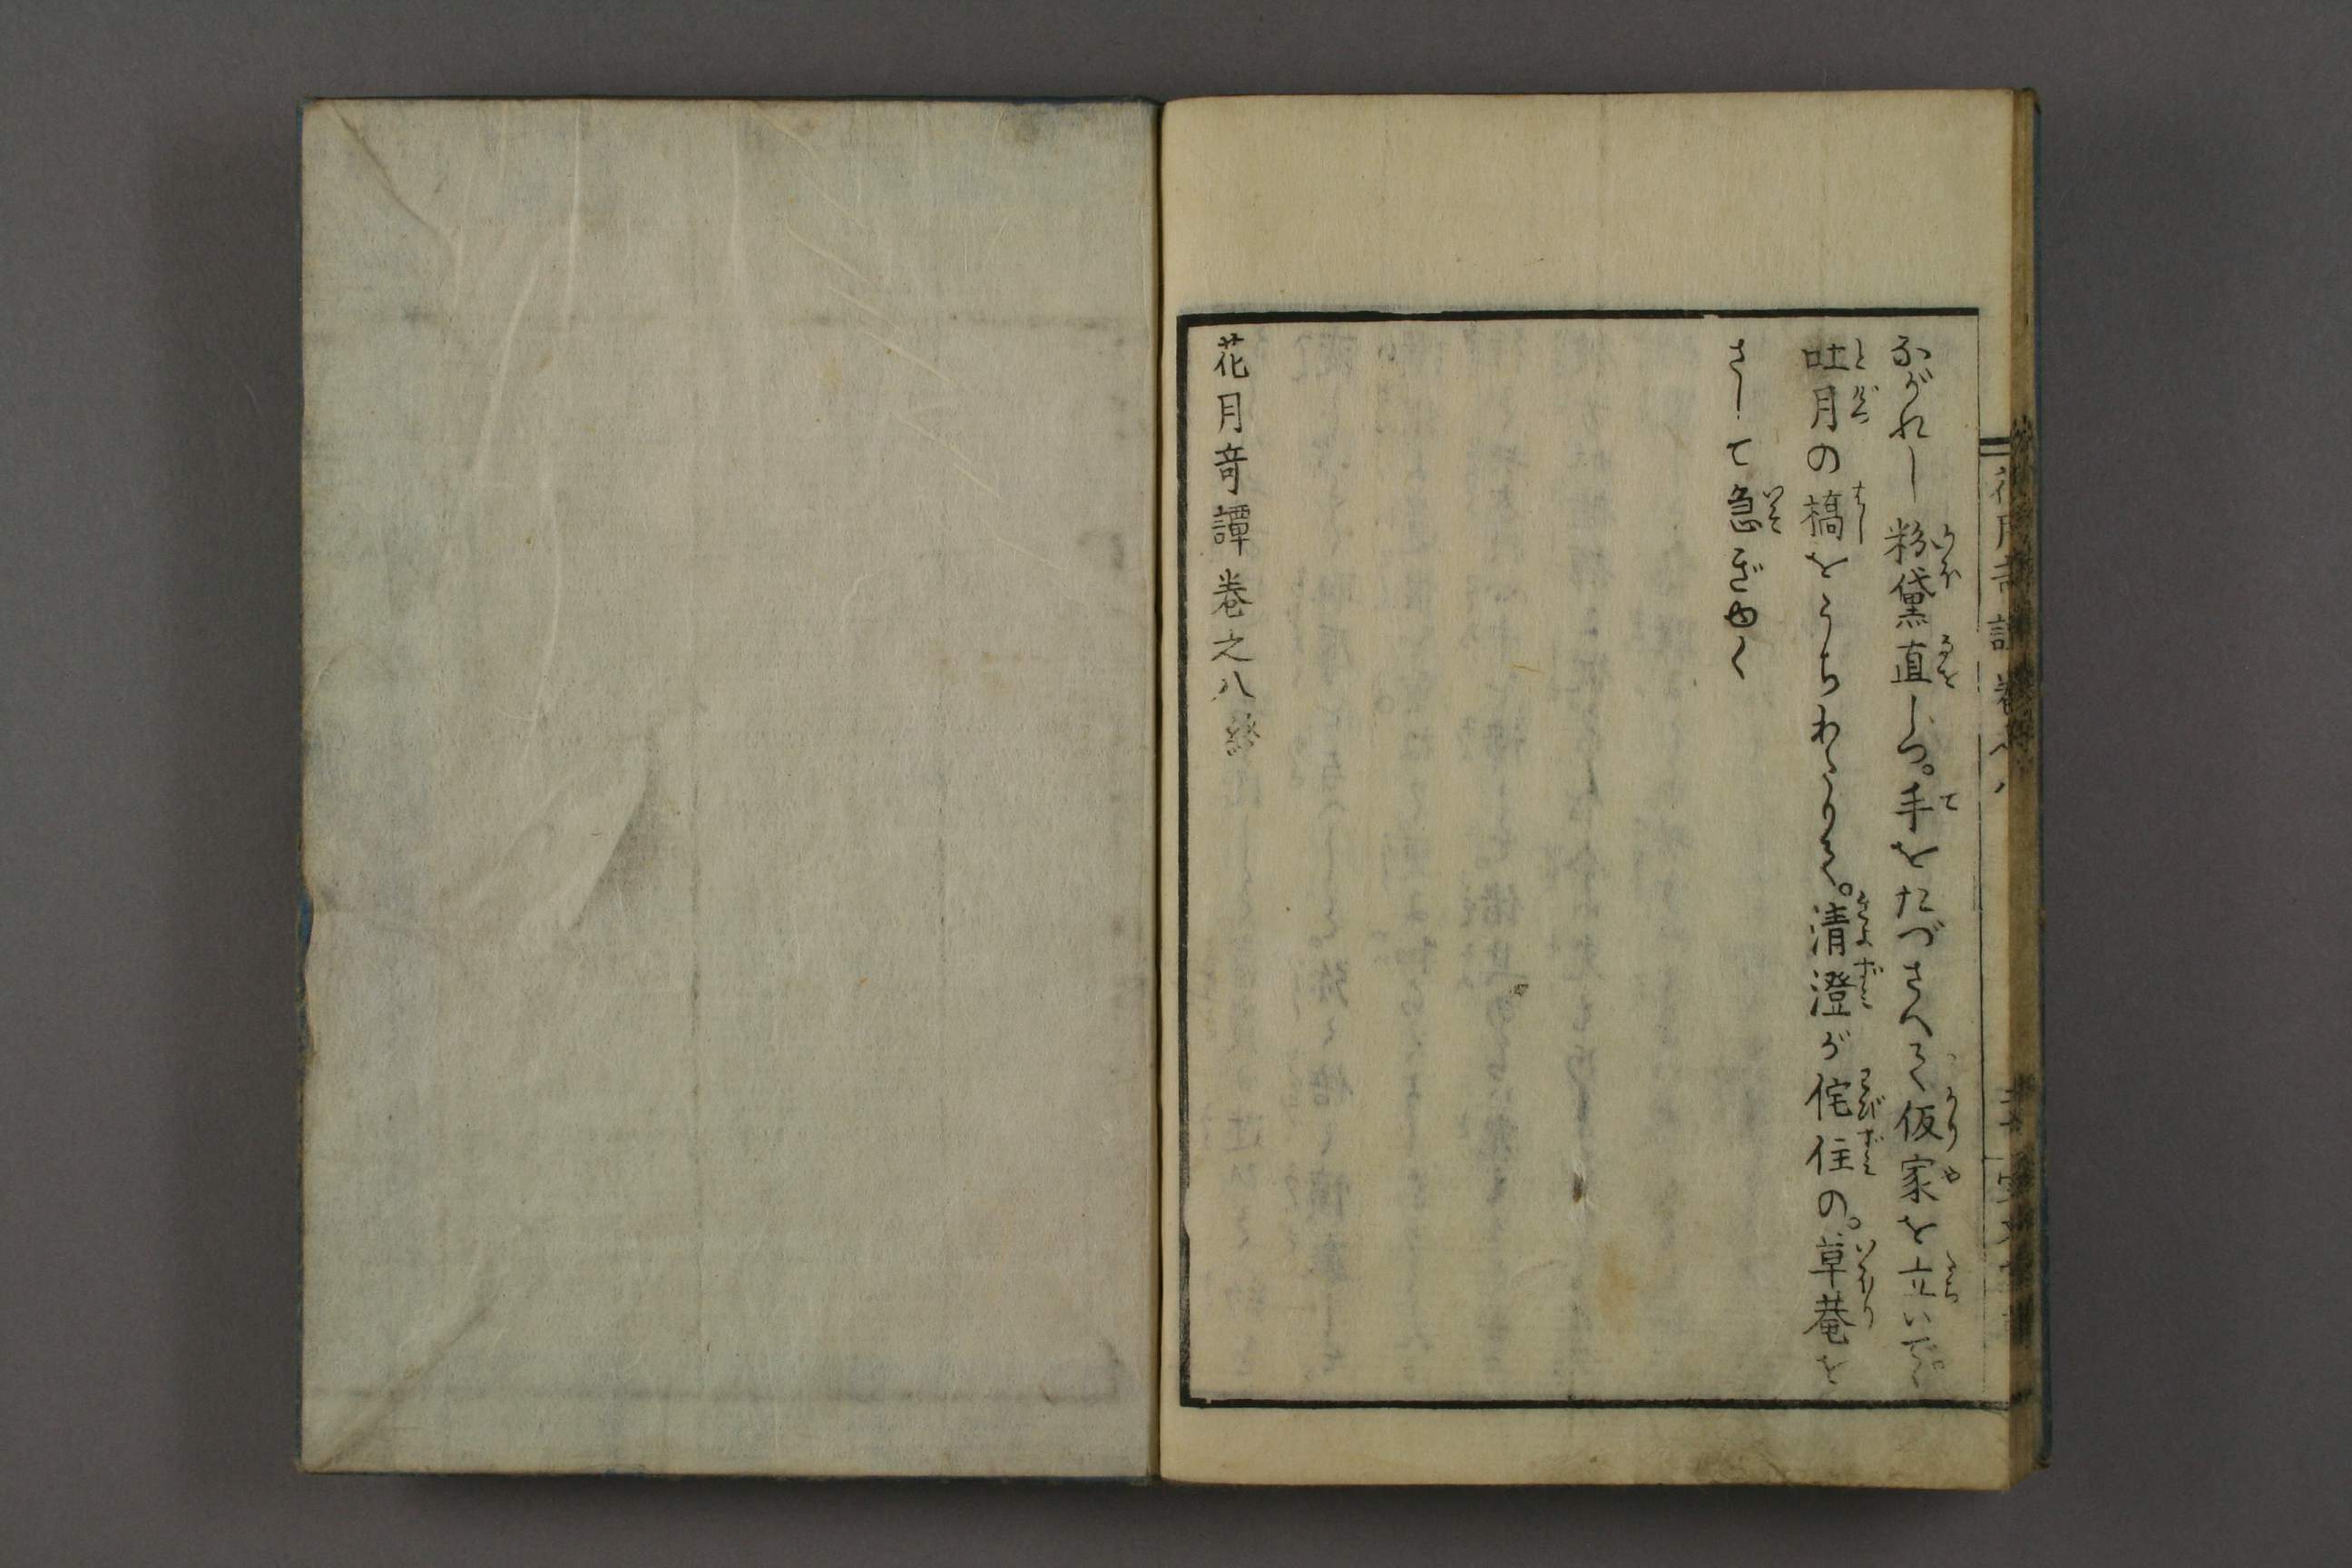 ながれし粉黛直しつ。手をたづさへて仮家を立いで。
吐月の橋をうちわたりて。清澄が侘住の。草菴を
さして急ぎゆく
花月奇譚巻之八終